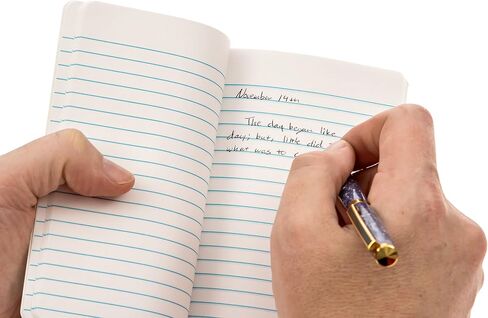 November 14th
The day began like
day; but, little did I
what was to